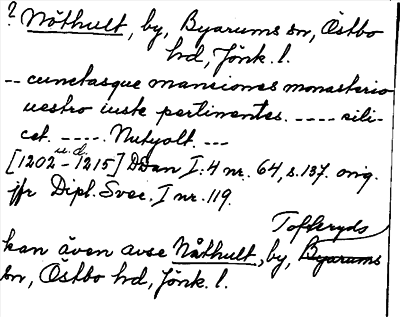 ? Nöthult, by, Byarums sn, Östbo
hd, Jönk. l.
-- cunctasque mansiones monasterio
uestro iuste pertinentes. ---- sili-
cet. ---- Nutyolt. ---
u.d.
[1202-1215] DDan I:4 nr. 64, s. 137. orig.
jfr Dipl. Svec. I nr. 119.
Tofteryds
kan även avse Nåthult, by, Byarums
sn, Östbo hd, Jönk. l.